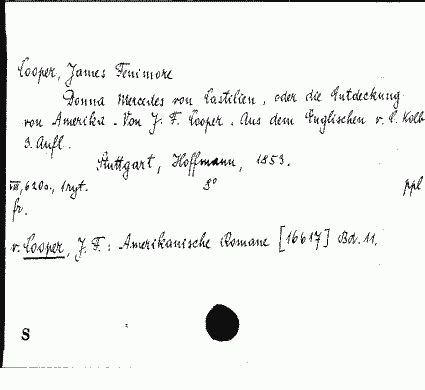 Cooper, James Fenimore
Donna Mercedes von Castilien, oder die Entdeckung
von Amerika. Von J. F. Cooper. Aus dem Englischen v. C. Kolb
3. Aufl.
Stuttgart, Hoffmann, 1853.
VIII, 620 s., 1 ryt. 8° ppl
fr.
v. Cooper, J. F.: Amerikanische Romane [16617] Bd. 11.
S